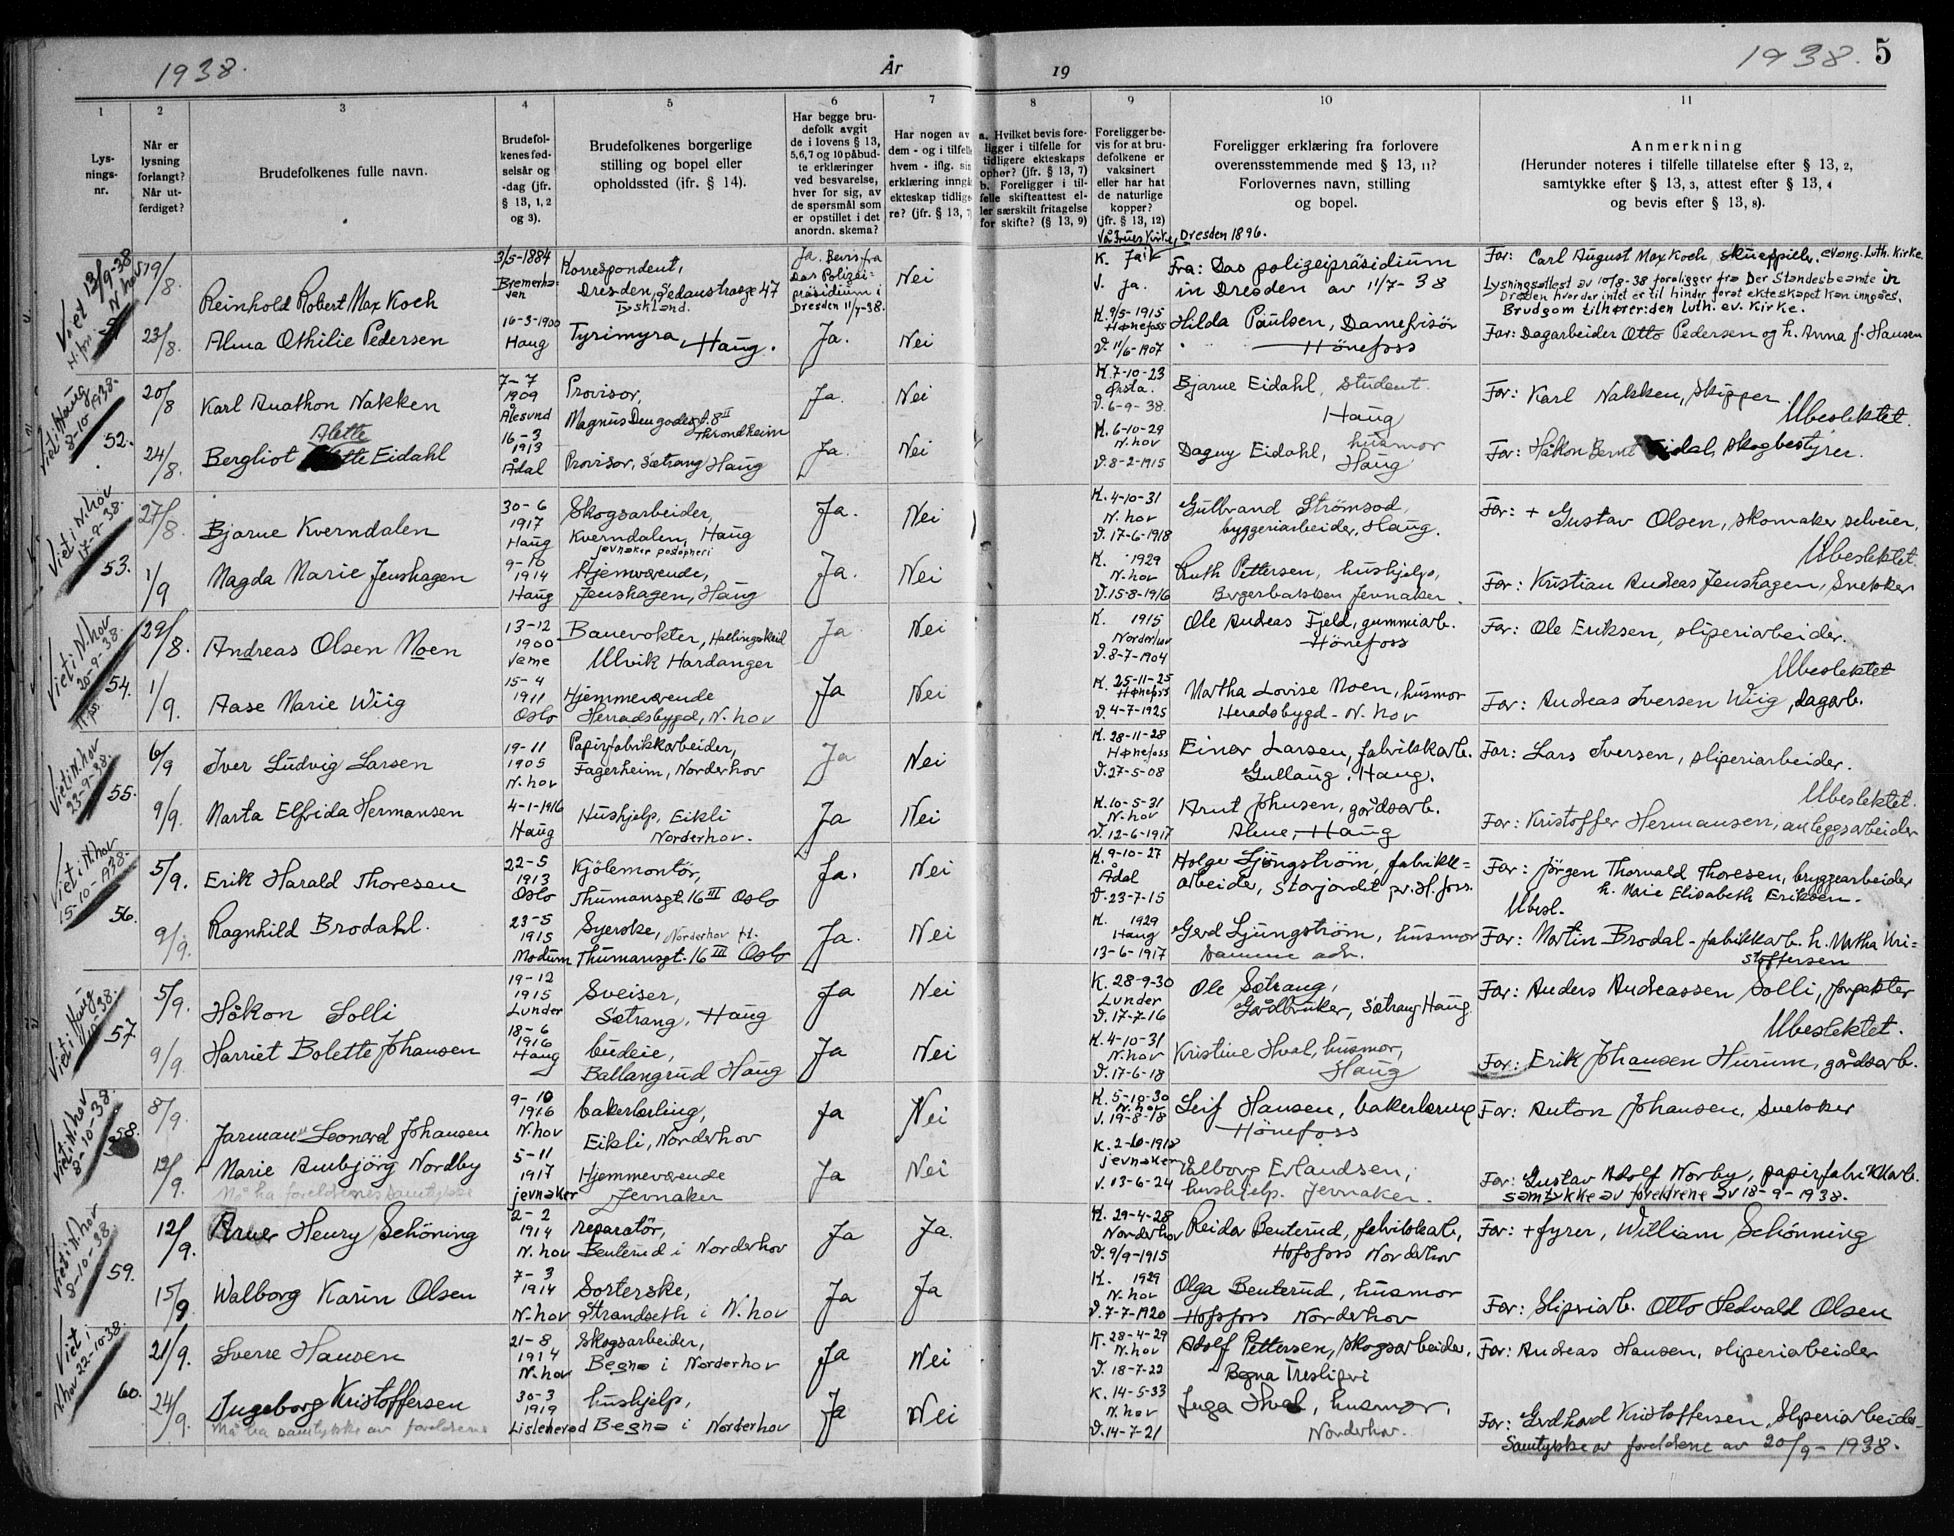 1938.
År
19
1938.
5
1
2
3
4
5
6
7
8
9
10
11
Lys-
nings-
nr.
Når er
lysning
forlangt?
Når ut-
ferdiget?
Brudefolkenes fulle navn.
Brudefol-
kenes fød-
selsår og
-dag (jfr.
§ 13, 1, 2
og 3).
Brudefolkenes borgerlige
stilling og bopel eller
opholdssted (jfr. § 14).
Har begge bru-
defolk avgit
de i lovens § 13,
5,6,7 og 10 påbud-
te erklæringer
ved besvarelse,
hver for sig, av
de spørsmål som
er opstillet i det
anordn. skema?
Har nogen av
dem - og i tilfelle
hvem - iflg. sin
erklæring inngå
ekteskap tidlige
re? (jfr. § 13, 7)
a. Hvilket bevis fore-
ligger i tilfelle for
tidligere ekteskaps
ophør? (jfr. § 13, 7)
b. Foreligger i til-
felle skifteattest el-
ler særskilt fritagelse
for skifte? (§ 13, 9)
Foreligger be-
vis for at bru-
defolkene er
vaksinert
eller har hat
de naturlige
kopper?
(jfr. § 13, 12)
Foreligger erklæring fra forlovere
overensstemmende med § 13, 11?
Forlovernes navn, stilling
og bopel.
Anmerkning
(Herunder noteres i tilfelle tillatelse efter § 13, 2,
samtykke efter § 13, 3, attest efter § 13, 4
og bevis efter § 13, 8).
Viet 13/9-38
N.hov
19/8.
Reinhold Robert Max Koch
3/5-1884
Bremerha-
ven
Korrespondent,
Dresden, Sedanstrasze 47
Tyskland.
Ja. Bevis fra
Das Polizei-
präsidium i
Dresden 11/7-38.
Nei
Vår Frues Kirke, Dresden 1896.
K. Ja
V. Ja.
Fra: Das polizeipräsidium
in Dresden av 11/7-38
Far: Carl August Max Koch, evang. Luth. Kirke.
Lysningsattest av 10/8-38 foreligger fra Der Standesbeamte in
Dresden hvorder intet er til hinder forat ekteskapet kan inngåes.
Brudgom tilhører: den luth. ev. Kirke.
23/8.
Alma Othilie Pedersen
16-3-1900
Haug
Tyrimyra, Haug.
Ja.
Nei
K. 9/5-1915
Hønefoss
V. 11/6-1907
Hilda Paulsen, Damefrisör
Hönefoss
Far: Dagarbeider Otto Pedersen og h. Anna f. Hansen
Viet i Haug
8-10-1938.
52.
20/8
Karl Anathon Nakken
7-7
1909
Ålesund
Provisor,
Magnus Den godes gt. 8 II
Throndheim
Ja.
Nei
K. 7-10-23
Ørsta.
V. 6-9-38.
Bjarne Eidahl, student.
Haug
Far: Karl Nakken, skipper
Ubeslektet.
24/8.
Bergliot Alette Eidahl
16-3
1913
Ådal
Provisor, Sætrang Haug
Ja.
Nei
K. 6-10-29
N.hov
V. 8-2-1915
Dagny Eidahl, husmor
Haug
Far: Håkon Bernt Eidal, skogbestyrer.
Viet i N.hov
17-9-38.
53.
27/8.
Bjarne Kverndalen
30-6
1917
Haug
Skogsarbeider,
Kverndalen, Haug
jevnaker postopneri
Ja.
Nei
K. 4-10-31
N.hov
V. 17-6-1918
Gulbrand Strömsod,
byggeriarbeider, Haug.
Far: + Gustav Olsen, skomaker selveier,
Ubeslektet.
1/9
Magda Marie Jenshagen
9-10
1914
Haug
Hjemværende,
Jenshagen, Haug
Ja.
Nei
K. 1929
N.hov
V. 15-8-1916
Ruth Pettersen, hushjelp,
Bergerbakken Jevnaker.
Far: Kristian Andreas Jenshagen, Snekker
Viet i N.hov
20-9-38.
54.
29/8.
Andreas Olsen Moen
13-12
1900
Veme
Banevokter, Hallingskeid
Ulvik Hardanger
Ja
Nei
K. 1915
Norderhov
V. 8-7-1904
Ole Andreas Fjeld, gummiarb.
Hönefoss
Far: Ole Eriksen, sliperiarbeider.
Ubeslektet
1/9.
Aase Marie Wiig
15-4
1911
Oslo
Hjemmeværende
Herradsbygd, N.hov
Ja
Nei
K. 25-11-25
Hønefoss
V. 4-7-1925
Martha Lovise Moen, husmor
Heradsbygd - N.hov
Far: Andreas Iversen Wiig, dagarb.
Viet i N.hov
23-9-38.
55.
6/9
Iver Ludvig Larsen
19-11
1905
N.hov
Papirfabrikkarbeider,
Fagerheim, Norderhov
Ja
Nei
K. 28-11-28
Hønefoss
V. 27-5-08
Einar Larsen, fabrikkarb.
Gullaug, Haug.
Far: Lars Iversen, sliperiarbeider.
Ubeslektet.
9/9.
Marta Elfrida Hermansen
4-1-1916
Haug
Hushjelp, Eikli
Norderhov.
Ja
Nei
K. 10-5-31
N.hov
V. 12-6-1917
Arnt Johnsen, gårdsarb.
Alme, Haug
Far: Kristoffer Hermansen, anleggsarbeider
Viet i N.hov
15-10-1938.
56.
5/9.
Erik Harald Thoresen
22-5
1913
Oslo
Kjölemontör,
Thumansgt. 16 III Oslo
Ja.
Nei
K. 9-10-27
Ådal
V. 23-7-15
Holger Ljüngström, fabrikk=
arbeider, Storjordt pr. H.foss.
Far: Jörgen Thorvald Thoresen, bryggearbeider
h. Marie Elisabeth Eriksen.
Ubesl.
9/9.
Ragnhild Brodahl.
23-5
1915
Modum
Syerske, Norderhov
Thumansgt. 16 III Oslo
Ja.
Nei
K. 1929
Haug
13-6-1917
Gerd Ljungström, husmor
samme adr.
Far: Martin Brodal - fabrikkarb. h. Martha Kri=
stoffersen
Viet i Haug
57.
5/9.
Håkon Solli
19-12
1915
Lunder
Sveiser,
Sætrang, Haug
Ja
Nei
K. 28-9-30
Lunder
V. 17-7-16
Ole Sætrang,
Gårdbruker, Sætrang Haug.
Far: Anders Andreassen Solli, forpakter
Ubeslektet.
9/9.
Harriet Bolette Johansen
18-6
1916
Haug
budeie,
Ballangrud Haug
Ja
Nei
K. 4-10-31
N.hov
V. 17-6-18
Kristine Hval, husmor,
Haug
Far: Erik Johansen Hurum, gårdsarb.
Viet i N.hov
8-10-38.
58.
8/9.
Jarman Leonard Johansen
9-10
1916
N.hov
bakerlærling,
Eikli, Norderhov
Ja
Nei
K. 5-10-30
N.hov
V. 19-8-18
Leif Hansen, bakerlærling
Hönefoss
Far: Anton Johansen, Snekker
12/9.
Marie Ambjörg Nordby
Må ha foreldrenes samtykke
5-11
1917
jevnaker
Hjemmeværende
Jevnaker
Ja
Nei
K. 2-10-1918
jevnaker
V. 13-6-24
Valborg Erlandsen,
hushjelp. Jevnaker.
Far: Gustav Adolf Norby, papirfabrikkarb.
samtykke av foreldrene av 18-9-1938.
Viet i N.hov
8-10-38
59.
12/9.
Arne Henry Schöning
2-2
1914
N.hov
reparatör,
Benterud i Norderhov
Ja
Ja.
K. 29-4-28
Norderhov
V. 9/9-1915
Reidar Benterud, fabrikkarb.,
Hofsfoss Norderhov
Far: + fyrer, William Schönning
15/9
Walborg Karin Olsen
7-3
1914
N.hov
Sorterske,
Strandseth i N.hov
Ja
Ja
K. 1929
N.hov
V. 7-7-1920
Olga Benterud, husmor
Hofsfoss Norderhov
Far: Sliperiarb. Otto Sedvald Olsen
Viet i
N.hov 22-10-38.
60.
21/9.
Sverre Hansen
21-8
1914
N.hov
Skogsarbeider,
Begna i Norderhov
Ja
Nei
K. 28-4-29
N.hov
V. 18-7-22
Adolf Pettersen, skogsarbeider,
Begna Tresliperi
Far: Andreas Hansen, sliperiarbeider
24/9.
Ingeborg Kristoffersen
Må ha samtykke av foreldrene
30-3
1919
Lislenerød
hushjelp,
Begna i Norderhov
Ja
Nei
K. 14-5-33
N.hov
V. 14-7-21
Inga Hval, husmor,
Norderhov.
Far: Gerdhard Kristoffersen, Sliperiarbeider
Samtykke av foreldrene av 20/9-1938.